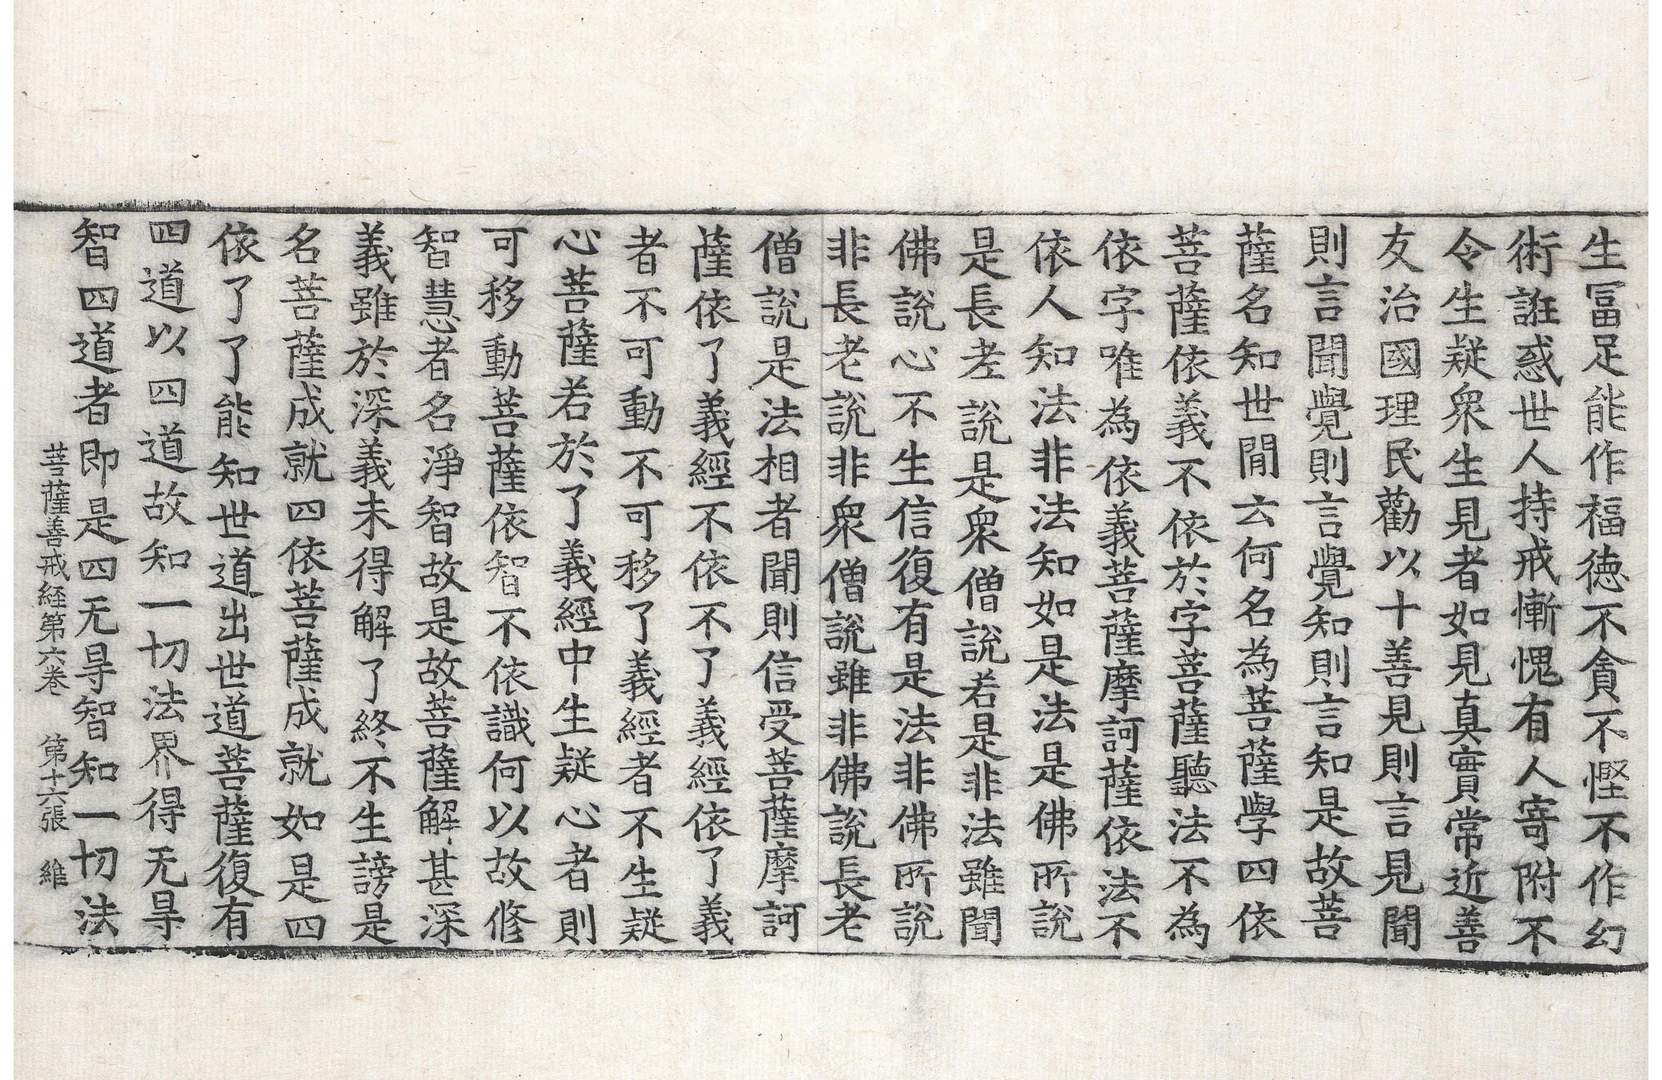 生冨足能作福德不貪不慳不作幻
術誑惑世人持戒慚愧有人寄附不
令生疑衆生見者如見真實常近善
友治國理民勸以十善見則言見聞
則言聞覺則言覺知則言知是故菩
薩名知世間云何名為菩薩學四依
菩薩依義不依於字菩薩聽法不為
依字唯為依義菩薩摩訶薩依法不
依人知法非法知如是法是佛所說
是長老說是衆僧說若是非法雖聞
佛說心不生信復有是法非佛所說
非長老說非衆僧說雖非佛說長老
僧說是法相者聞則信受菩薩摩訶
薩依了義經不依不了義經依了義
者不可動不可移了義經者不生疑
心菩薩若於了義經中生疑心者則
可移動菩薩依智不依識何以故修
智慧者名淨智故是故菩薩解甚深
義雖於深義未得解了終不生謗是
名菩薩成就四依菩薩成就如是四
依了了能知世道出世道菩薩復有
四道以四道故知一切法界得无㝵
智四道者即是四无㝵智知一切法
菩薩善戒経第六卷 第十六張 維